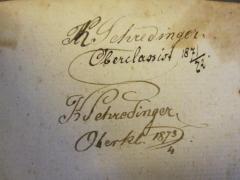 K Schredinger.
Oberclassist 1871/72.
K Schredinger.
Oberkl. 1873/4